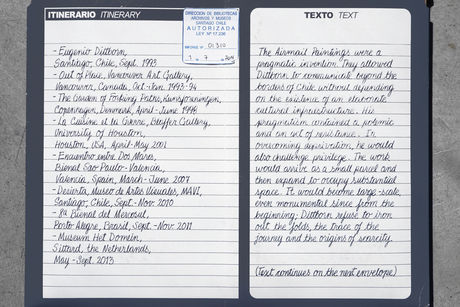 ITINERARIO ITINERARY
DIRECCION DE BIBLIOTECAS
ARCHIVOS Y MUSEOS
SANTIAGO CHILE
AUTORIZADA
LEY Nº 17.236
01310
- Eugenio Dittborn,
Santiago, Chile, Sept. 1993
- Out of Place, Vancouver Art Gallery,
Vancouver, Canada, Oct.-Jan. 1993-94
- The Garden of Forking Paths, Kunstforeningen,
Copenhagen, Denmark, April-June 1998
- La Cuisine et la Guerre, Blaffer Gallery,
University of Houston,
Houston, USA, April-May 2001
- Encuentro entre Dos Mares,
Bienal Sao Paulo-Valencia,
Valencia, Spain, March-June 2007
- Desierta, Museo de Artes Visuales, MAVI,
Santiago, Chile, Sept.-Nov. 2010
- 8ª Bienal del Mercosul,
Porto Alegre, Brasil, Sept.-Nov. 2011
- Museum Het Domein,
Sittard, the Netherlands,
May-Sept. 2013
TEXTO TEXT
The Airmail Paintings were a
pragmatic invention. They allowed
Dittborn to communicate beyond the
borders of Chile without depending
on the existence of an elaborate
cultural infrastructure. His
pragmatism contained a polemic
and an act of resistance. In
overcoming deprivation, he would
also challenge privilege. The work
would arrive as a small parcel and
then expand to occupy substantial
space. It would become large-scale,
even monumental since from the
beginning, Dittborn refuse to iron
out the folds, the trace of the
journey and the origins of scarcity.
(Text continues on the next envelope)